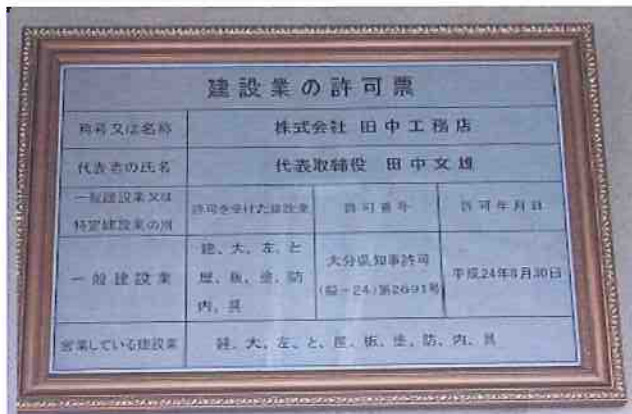 建設業の許可票
商号又は名称 株式会社 田中工務店
代表者の氏名 代表取締役 田中文雄
一般建設業又は
特定建設業の別
許可を受けた建設業 許可番号 許可年月日
一般建設業
建、大、左、と
屋、板、塗、防
内、具
大分県知事許可
(般-24)第2691号
平成24年8月30日
営業している建設業 建、大、左、と、屋、板、塗、防、内、具